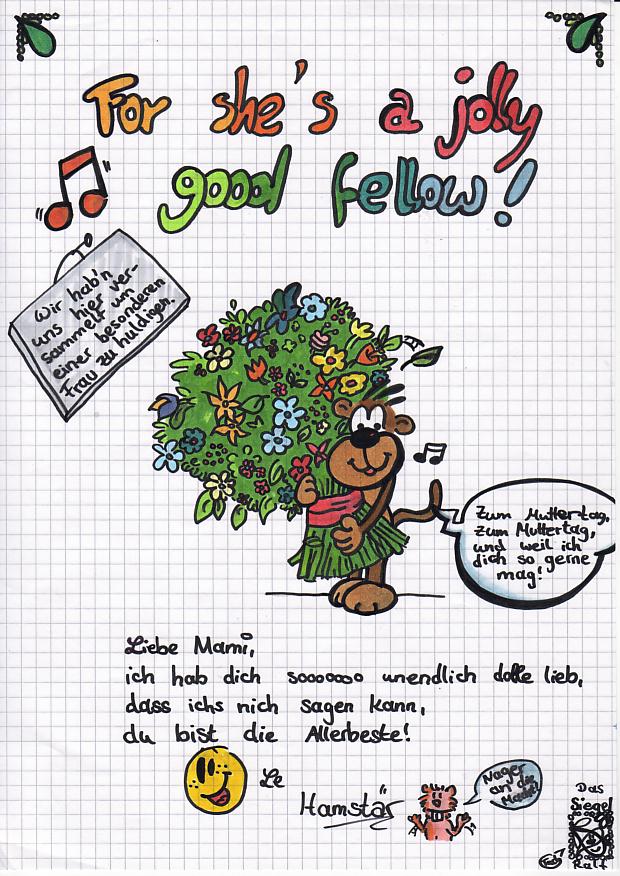 For she's a jolly
goood fellow!
Wir hab'n
uns hier ver-
sammelt um
einer besonderen
Frau zu huldigen.
Zum Muttertag,
zum Muttertag,
und weil ich
dich so gerne
mag!
Liebe Mami,
ich hab dich soooooooo unendlich dolle lieb,
dass ichs nich sagen kann,
du bist die Allerbeste!
Le
Hamstär
Nager
an die
Macht!
Das
Siegel
Ralf